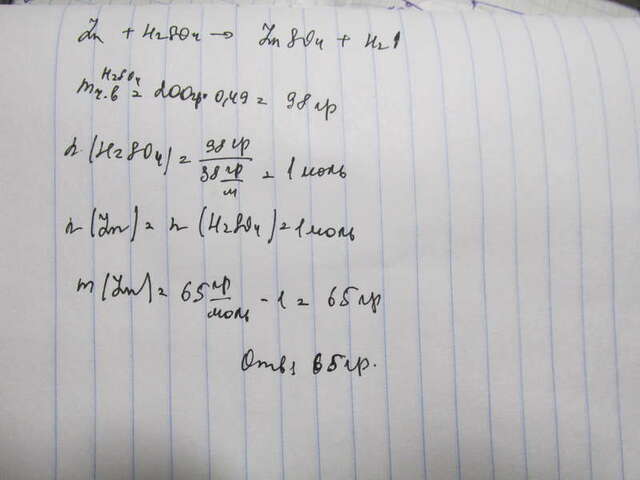 Zn + H2SO4 → ZnSO4 + H2↑
mч.в H2SO4 = 200гр · 0,49 = 98 гр
n(H2SO4) = 98 гр / 98 гр/м = 1 моль
n(Zn) = n(H2SO4) = 1 моль
m(Zn) = 65 гр/моль · 1 = 65 гр
Отв: 65 гр.